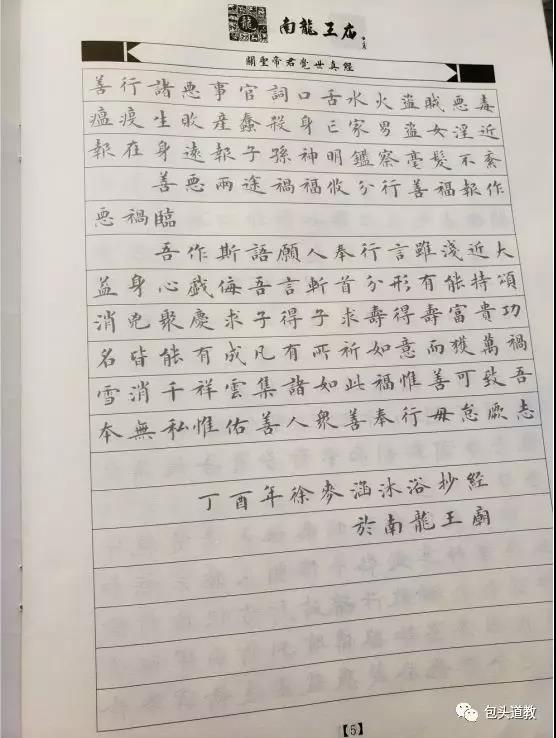 龍 南龍王庙
關聖帝君覺世真經
善行諸惡事官詞口舌水火盜賊惡毒
瘟疫生敗產蠢殺身亡家男盜女淫近
報在身遠報子孫神明鑑察毫髮不紊
善惡兩途禍福攸分行善福報作
惡禍臨
吾作斯語願人奉行言雖淺近大
益身心戲侮吾言斬首分形有能持頌
消兇聚慶求子得子求壽得壽富貴功
名皆能有成凡有所祈如意而獲萬禍
雪消千祥雲集諸如此福惟善可致吾
本無私惟佑善人衆善奉行毋怠厥志
丁酉年徐麥涵沐浴抄經
於南龍王廟
【5】
包头道教